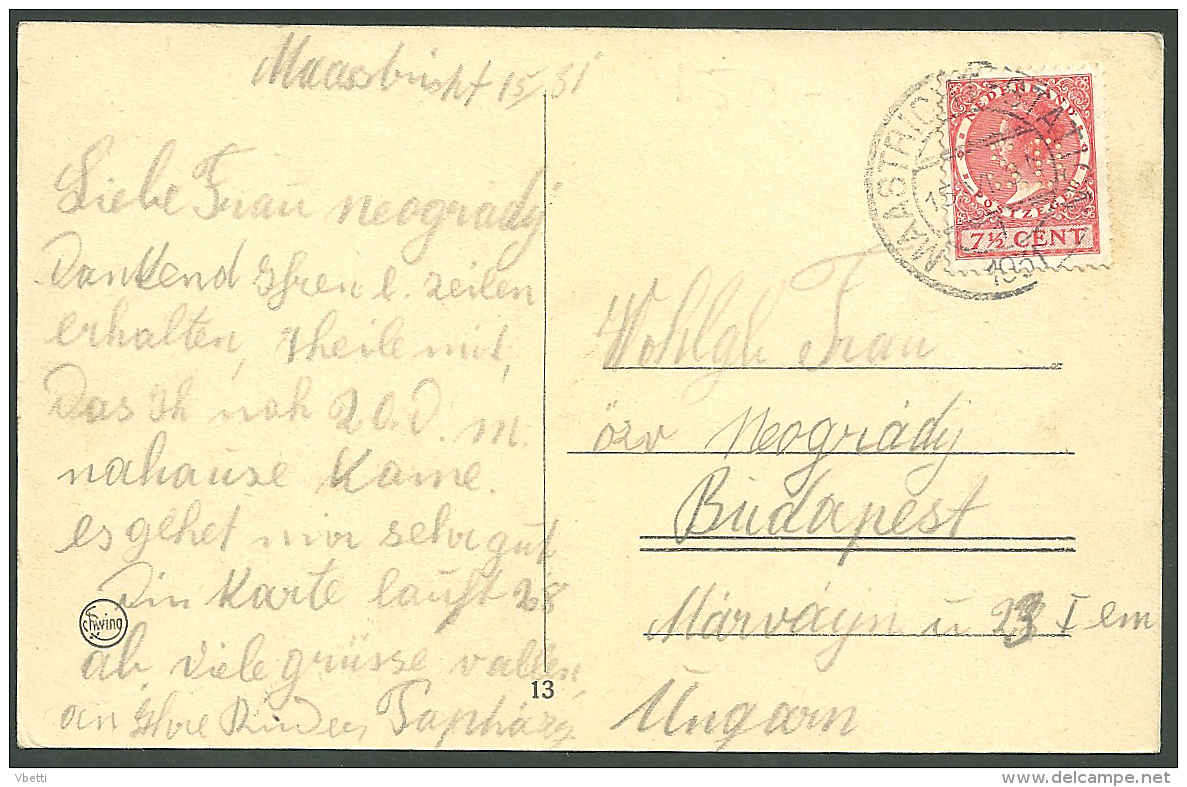 Maasbricht 15/ 31
Liebe Frau Neogrády
Dankend Ihren l. zeilen
erhalten, theile mit,
Das Ih nah 20. D. M.
nahause Kome.
es gehet mir sehr gut
Din Karte lauft 28
ab. Viele grüsse vallen,
an Ihre Kinder
Schwing
13
NEDERLAND
POSTZEGEL
7½ CENT
MAASTRICHT STATION
1931
Wohlgb Frau
özv Neogrády
Budapest
Márváyn u 23 I em
Ungarn
Vbetti
http://www.delcampe.net